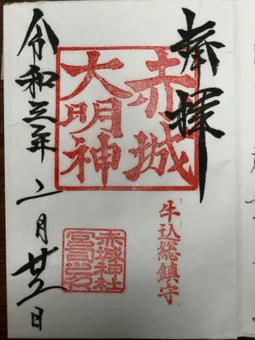 奉拝
赤城
大明神
牛込総鎮守
赤城神社
宮司之印
令和三年二月日